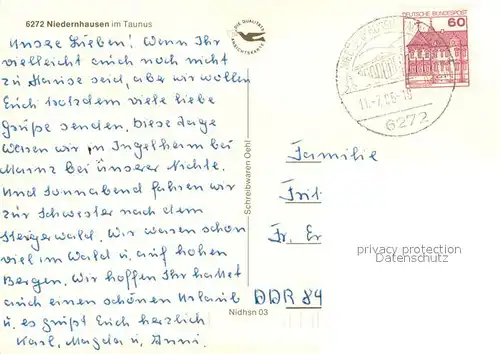 6272 Niedernhausen im Taunus
DIE QUALITÄTS
ANSICHTSKARTE
DEUTSCHE BUNDESPOST
60
6272
Unsere Lieben! Wenn Ihr
vielleicht auch noch nicht
zu Hause seid, aber wir wollen
Euch trotzdem viele liebe
Grüße senden. Diese Tage
waren wir in Ingelheim bei
Mainz bei unserer Nichte.
Und Sonnabend fahren wir
zur Schwester nach dem
Steigerwald. Wir waren schon
viel im Wald u. auf hohen
Bergen. Wir hoffen Ihr hattet
auch einen schönen Urlaub
u. es grüßt Euch herzlich
Karl, Magda u. Anni.
Schreibwaren Oehl
Nidhsn 03
Familie
Frit
Fr. Er
DDR 84
privacy protection
Datenschutz